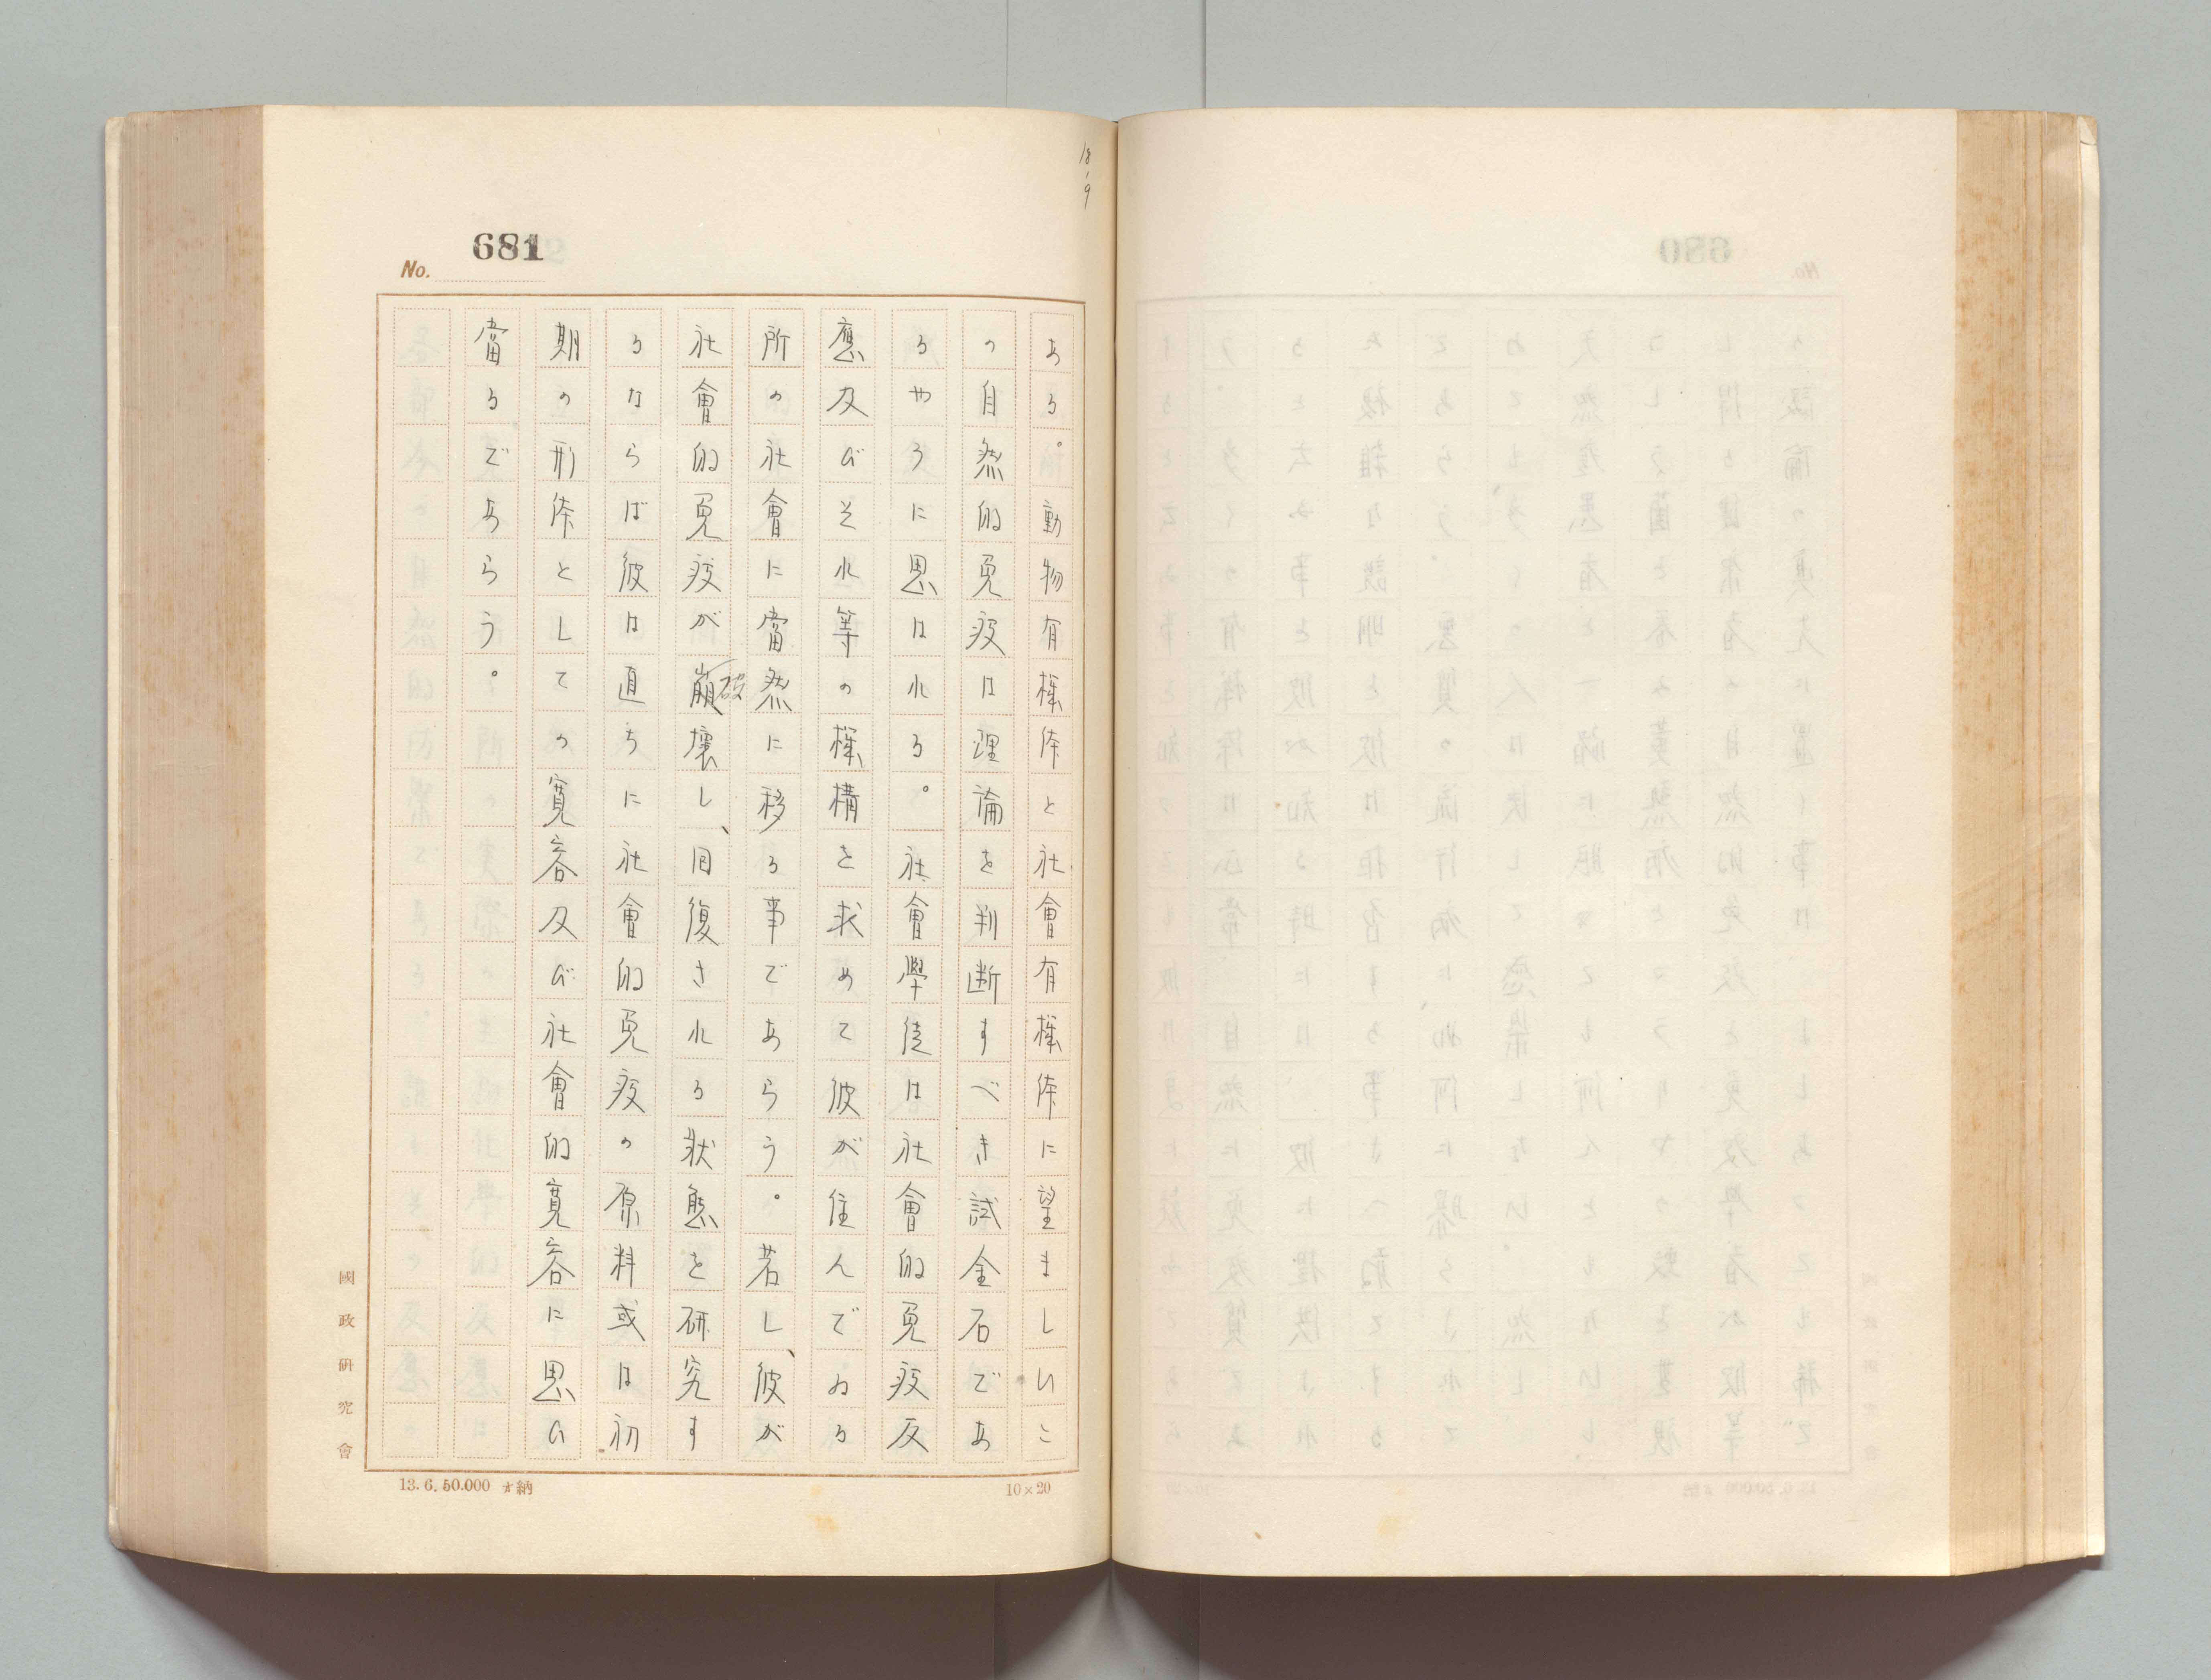 18.9
No. 681
ある。動物有機体と社會有機体に望ましいこ
の自然的免疫は理論を判断すべき試金石であ
るやうに思はれる。社會學徒は社會的免疫反
應及びそれ等の機構を求めて彼が住んでゐる
所の社會に當然に移る事であらう。若し、彼が
社會的免疫が崩壊し、回復される状態を研究す
破
るならば彼は直ちに社會的免疫の原料或は初
期の形体としての寛容及び社會的寛容に思ひ
當るであらう。
國政研究會
13.6.50.000 納
10×20